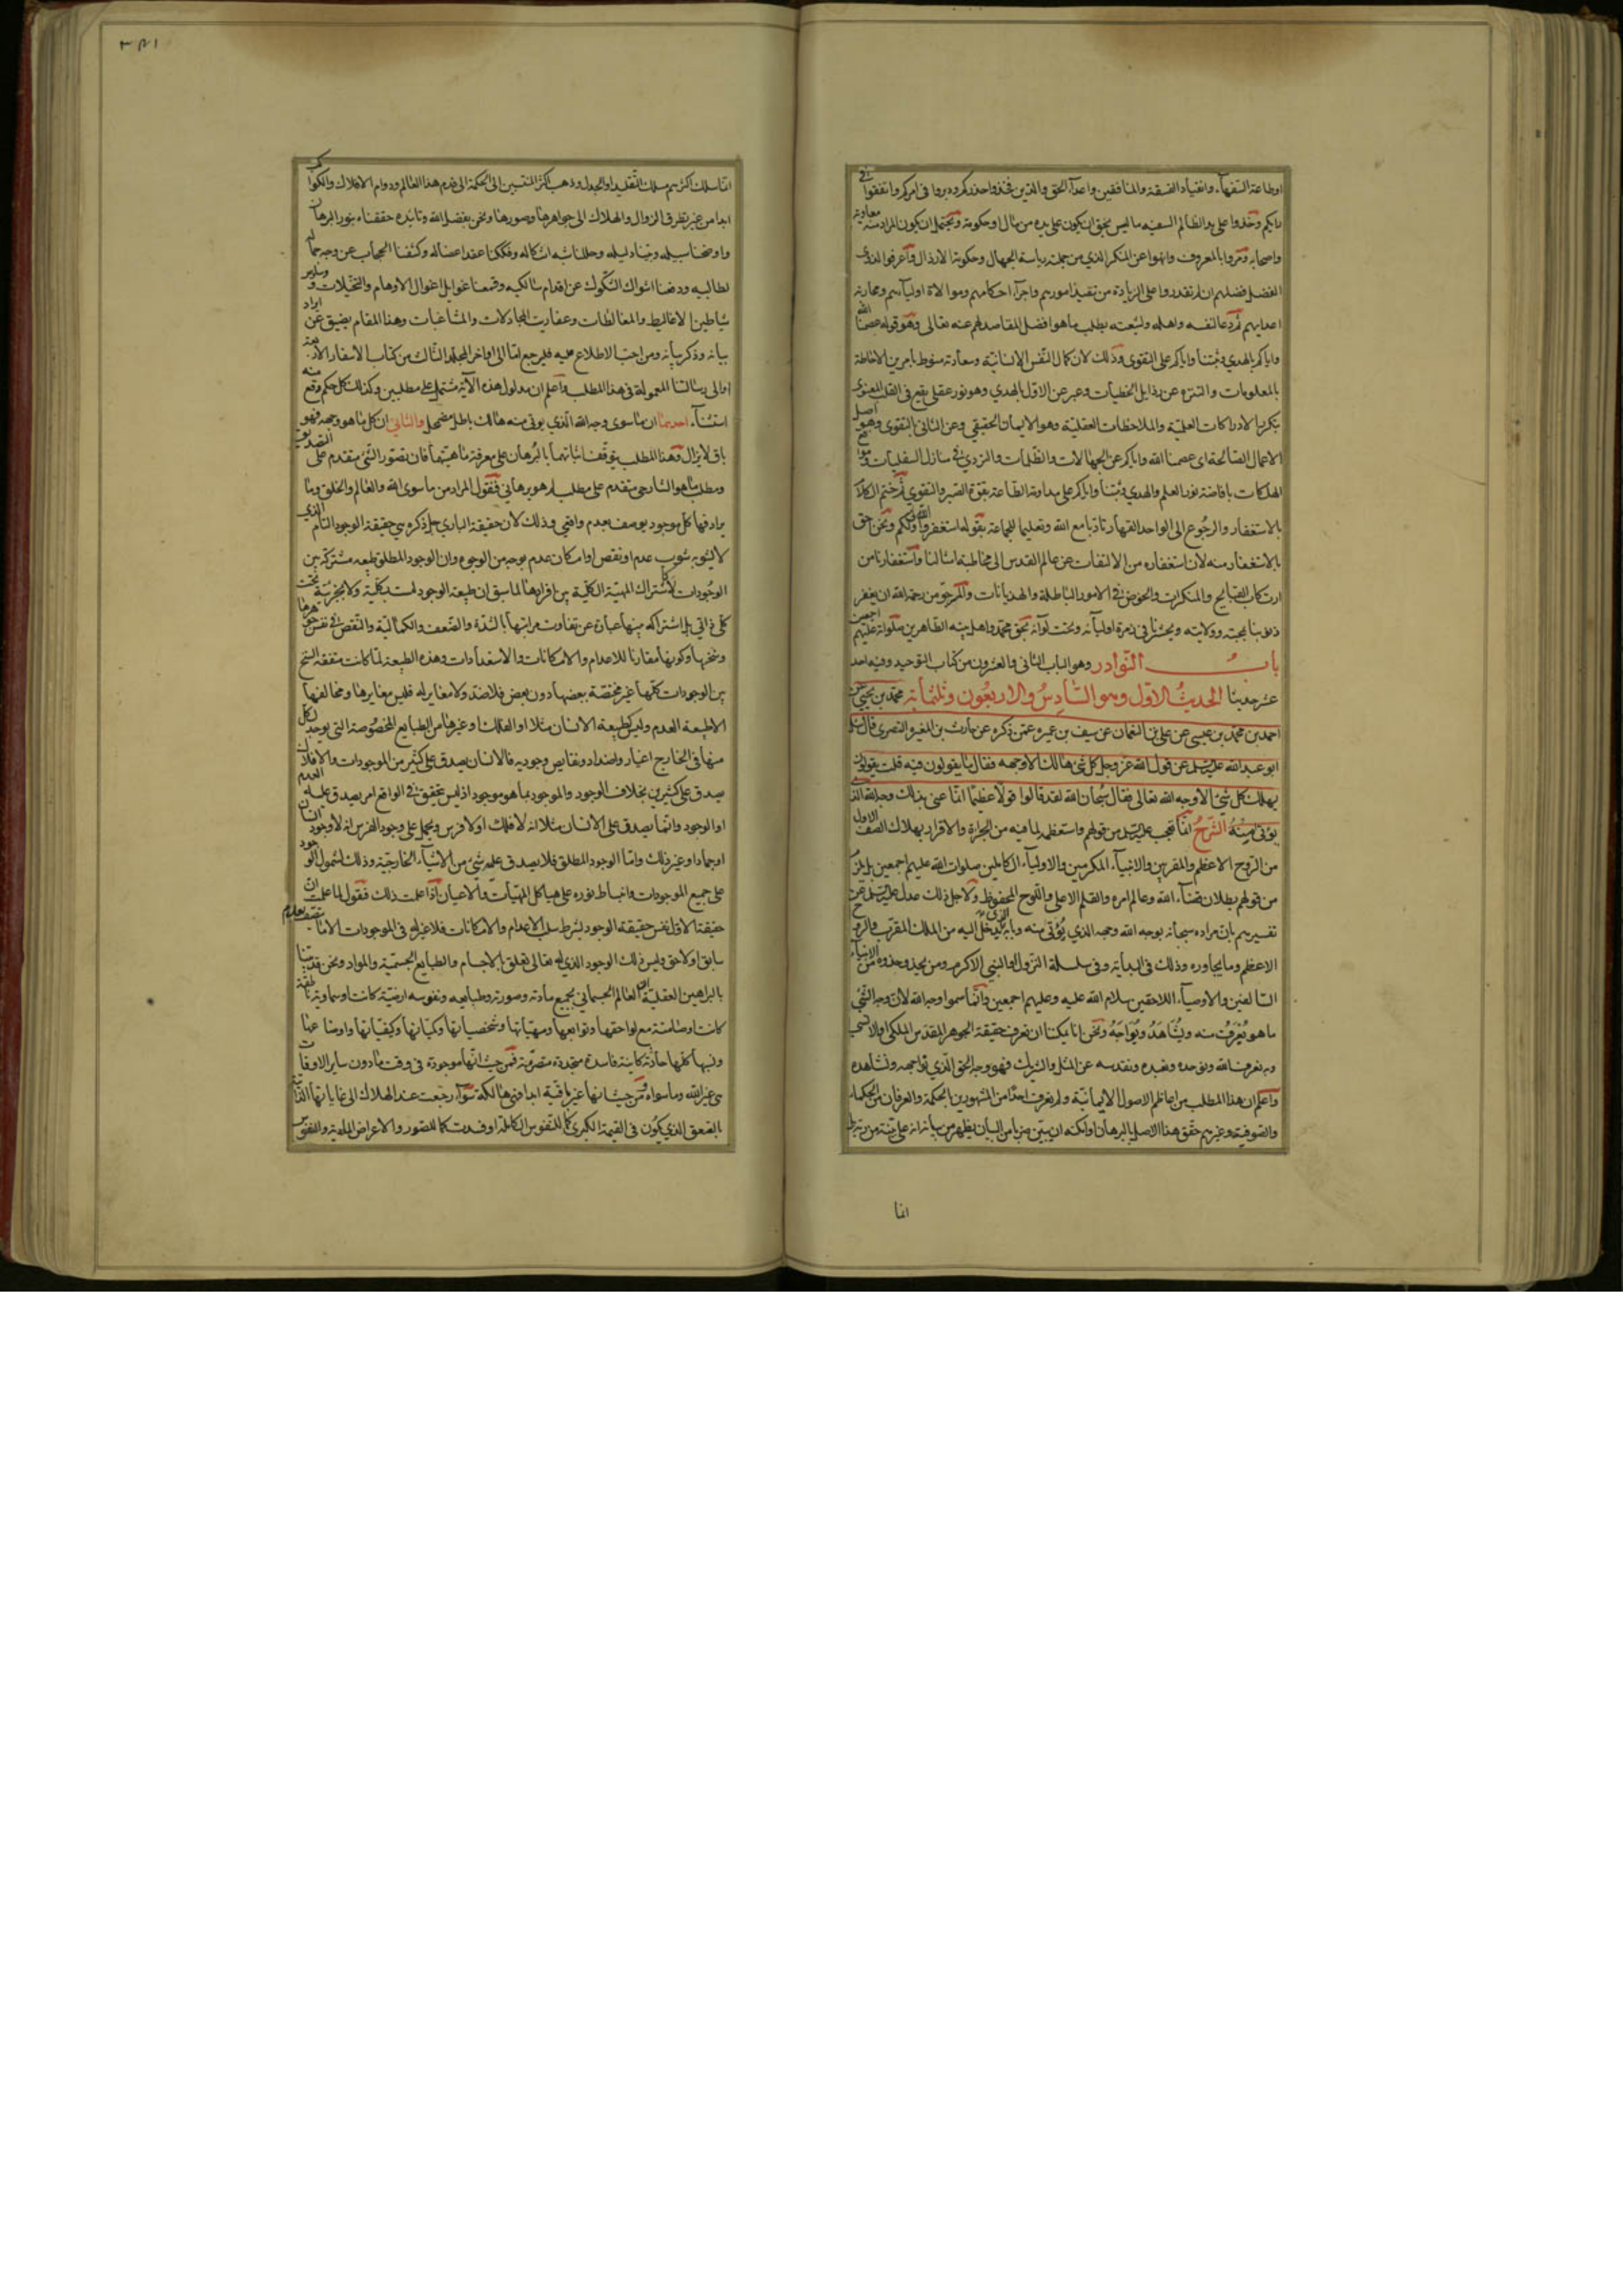 اوطاعة السفهاء وانقياد الفسقة والمنافقين واعداء الحق والدين فخذوا حذركم ودبروا فى امركم واتفقوا فى
رايكم وخذوا على يد الظالم السفيه ما ليس بحق ان يكون على يده من مال او حكومة ويحتمل ان يكون المراد منه معاوية
واصحابه ومروا بالمعروف وانهوا عن المنكر الذي من جملته رياسة الجهال وحكومة الارذال واعرفوا لذوى
الفضل فضلهم ان لم تقدروا على الزيادة من تنفيذ امورهم واجراء احكامهم وموالاة اوليائهم ومحاربة
اعدائهم ثم دعا لنفسه واهله ولشيعته بطلب ما هو افضل المقاصد لهم عنه تعالى وهو قوله عصمنا الله
واياكم بالهدي وثبتنا واياكم على التقوى وذلك لان كمال النفس الانسانية وسعادته منوط بامرين الاحاطة
بالمعلومات والتنزه عن رذايل الخطيات وعبر عن الاول بالهدي وهو نور عقلي يقع فى القلب المعنوى
بتكرير الادراكات العلمية والملاحظات العقلية وهو الايمان الحقيقي وعن الثانى بالتقوى وهو اصل
الاعمال الصالحة اى عصمنا الله واياكم عن الجهالات والظلمات والتردي فى منازل السفليات
الهلكات بافاضة نور العلم والهدي وثبتنا واياكم على مداومة الطاعة بقوة الصبر والتقوى ثم ختم الكلام
بالاستغفار والرجوع الى الواحد القهار تادبا مع الله وتعليما للجماعة بقوله استغفر الله لى ولكم ونحن احق
بالاستغفار منه لان استغفاره من الالتفات عن عالم القدس الى مخاطبة امثالنا واستغفارنا من
ارتكاب القبايح والمنكرات والخوض فى الامور الباطلة والهذيانات والمرجو من رحمة الله ان يغفر
ذنوبنا بمحبته وولايته ويحشرنا فى زمرة اوليائه وتحت لوائه بحق محمد واهل بيته الطاهرين صلواته عليهم اجمعين
باب النوادر وهو الباب الثانى والعشرون من كتاب التوحيد وفيه احد
عشر حديثا الحديث الاول وهو السادس والاربعون وثلثمائة محمد بن يحيى عن
احمد بن محمد بن عيسى عن على بن النعمان عن سيف بن عميرة عمن ذكره عن حارث بن المغيرة النصرى قال سئل
ابو عبد الله عليه السلام عن قول الله عز وجل كل شئ هالك الا وجهه فقال ما يقولون فيه قلت يقولون
يهلك كل شئ الا وجه الله تعالى فقال سبحان الله لقد قالوا قولا عظيما انما عنى بذلك وجه الله الذى
يؤتى منه الشرح انما تعجب عليه السلام من قولهم واستعظمه لما فيه من الجرأة والاقرار بهلاك الصف الاول
من الروح الاعظم والمقربين والانبياء المكرمين والاولياء الكاملين صلوات الله عليهم اجمعين بل يلزم
من قولهم بطلان قضاء الله وعالم امره والقلم الاعلى واللوح المحفوظ ولاجل ذلك عدل عليه السلام عن
تفسيرهم بان مراده سبحانه بوجه الله وجهه الذي يؤتى منه وبابه الذى يدخل اليه من الملك المقرب والروح
الاعظم وما يجاوره وذلك فى البداية وفى سلسلة النزول او النبي الاكرم ومن يحذو حذوه من الانبياء
السالفين والاوصياء اللاحقين سلام الله عليه وعليهم اجمعين وانما سموا وجه الله لان وجه الشئ
ما هو يعرف منه ويشاهد ويواجه ونحن انما يمكننا ان نعرف حقيقة الجوهر المقدس الملكى
وبه نعرف الله ونوحده ونعبده ونقدسه عن المثل والشريك فهو وجه الحق الذي نواجهه ونشاهده
واعلم ان هذا المطلب من اعاظم الاصول الايمانية ولم يعرف احد من المشهورين بالحكمة والعرفان من الحكماء
والصوفية وغيرهم حقق هذا الاصل بالبرهان او لكنه ان يبين ضربا من البيان يظهر من بيانه انه على بينة من ربه بل
انما
٣٨١
انما سلك اكثرهم مسلك التقليد او الجدل وذهب اكثر المنتسبين الى الحكمة الى قدم هذا العالم ودوام الافلاك والكواكب
ابدا من غير تطرق الزوال والهلاك الى جواهرها وصورها ونحن بفضل الله وتائيده حققناه بنور البرهان
واوضحنا سبيله وبينا دليله وحللنا شبه اشكاله وفككنا عقد اعضاله وكشفنا الحجاب عن وجه جماله
لطالبيه ودفعنا اشواك الشكوك عن اقدام سالكيه وقمعنا غوايل اغوال الاوهام والتخيلات وسلاسل
شياطين الاغاليط والمغالطات وعفاريت المجادلات والمشاغبات وهذا المقام يضيق عن ايراد
بيانه وذكر بيانه ومن احب الاطلاع عليه فليرجع اما الى اواخر المجلد الثالث من كتاب الاسفار الاربعة
او الى رسالتنا المعمولة فى هذا المطلب واعلم ان مدلول هذه الآية مشتمل على مطلبين وكذلك كل حكم وقع منه
استثناء احدهما ان ما سوى وجه الله الذي يؤتى منه هالك باطل مضمحل والثانى ان كل ما هو وجهه فهو
باق لا يزال وهذا المطلب يتوقف اثباتهما بالبرهان على معرفة ماهيتهما فان تصور الشئ متقدم على التصديق به
ومطلب ما هو الشارحى متقدم على مطلب هل هو برهاني فنقول المراد من ما سوى الله والعالم والخلق وما
يرادفها كل موجود يوصف بعدم واقعي وذلك لان حقيقة الباري جل ذكره هي حقيقة الوجود التام الذي
لا يشوبه شوب عدم او نقص او امكان عدم بوجه من الوجوه وان الوجود المطلق طبيعة مشتركة بين
الوجودات لا كاشتراك المهية الكلية بين افرادها لما سبق ان طبيعة الوجود ليست بكلية ولا بجزئية تحت
كلى ذاتي بل اشتراكه بينها عبارة عن تفاوت مراتبها بالشدة والضعف والكمالية والنقص فى نفس جوهرها
وسنخها وكونها مقارنا للاعدام والامكانات والاستعدادات وهذه الطبيعة لما كانت متفقة السنخ
بين الوجودات كلها غير مختصة ببعضها دون بعض فلا ضد ولا مغاير له فليس مغايرها ومخالفها
الا طبيعة العدم وليس كطبيعة الانسان مثلا او الفلك او غيرها من الطبايع المخصوصة التى يوجد لكل
منها فى الخارج اغيار واضداد ونقايص وجودية فالانسان يصدق على كثير من الموجودات والافلاك
يصدق على كثيرين بخلاف الوجود والموجود بما هو موجود اذ ليس يتحقق فى الواقع امر يصدق عليه العدم
او الوجود وانما يصدق على الانسان مثلا انه لا فلك او لا فرس ويحمل على وجود الفرس انه لا وجود انسان
او جماد او غير ذلك واما الوجود المطلق فلا يصدق عليه شئ من الاشياء الخارجية وذلك لشمول الوجود
على جميع الموجودات وانبساط نوره على هياكل المهيات والاعيان اذا علمت ذلك فنقول لما علمت ان
حقيقة الاول نفس حقيقة الوجود بشرط سلب الاعدام والامكانات فلا غير له فى الموجودات الا ما يتصف بعدم
سابق او لاحق وليس ذلك الوجود الذي له تعالى تعلق بالاجسام والطبايع الجسمية والمواد ونحن قد بينا
بالبراهين العقلية ان العالم الجسماني بجميع مادته وصورته وطبايعه ونفوسه ارضية كانت او سماوية ناطقة
كانت او صامتة مع لواحقها وتوابعها ومهياتها وشخصياتها وكمياتها وكيفياتها واوضاعها
ونسبها كلها حادثة كاينة فاسدة متجددة متصرمة فمن حيث انها موجودة فى وقت ما دون ساير الاوقات
هى غير الله وما سواه ومن حيث انها غير باقية ابدا فهى هالكة سواء رجعت عند الهلاك الى غاياتها الذاتية
بالصعق الذي يكون فى القيمة الكبرى كما للنفوس الكاملة او فسدت كما للصور والاعراض المادية والنفوس